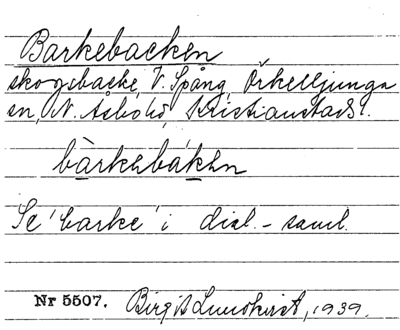 Barkebacken
skogsbacke, V. Spång, Örkelljunga
sn, N. Åsbo hd, Kristianstads l.
bàrkebákĕn
Se 'barke' i dial.-saml.
Nr 5507. Birgit Lundkvist, 1939.